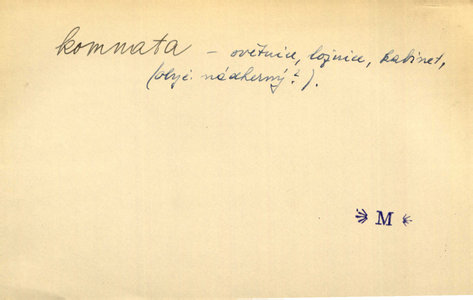 komnata – světnice, ložnice, kabinet,
(obyč. nádherný?).
M